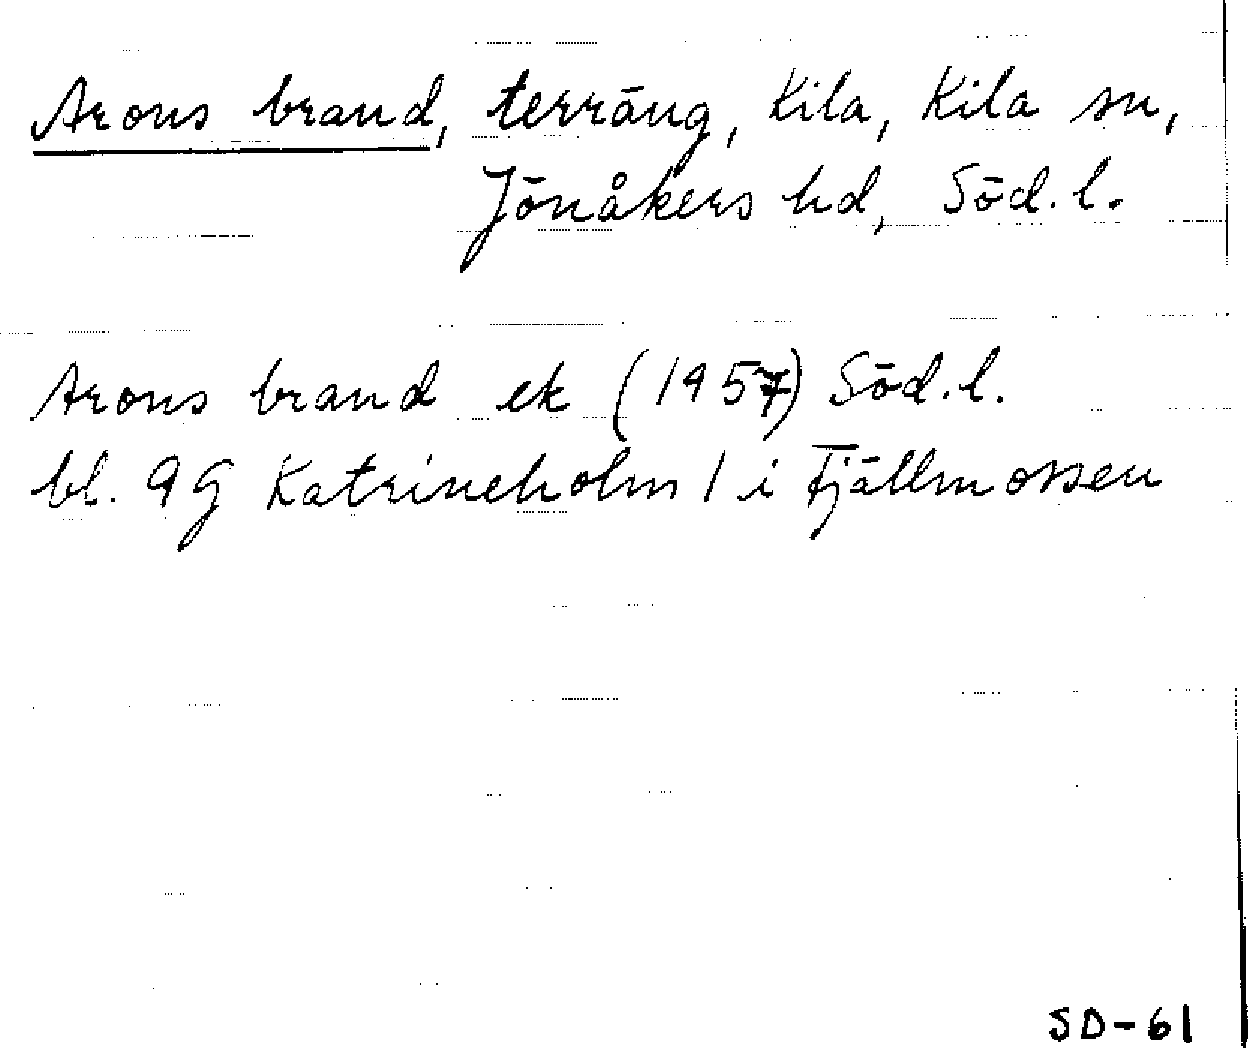 Arons brand, terräng, Kila, Kila sn,
Jönåkers hd, Söd. l.
Arons brand ek (1957) Söd. l.
bl. 9G Katrineholm / i Fjällmossen
SD-61